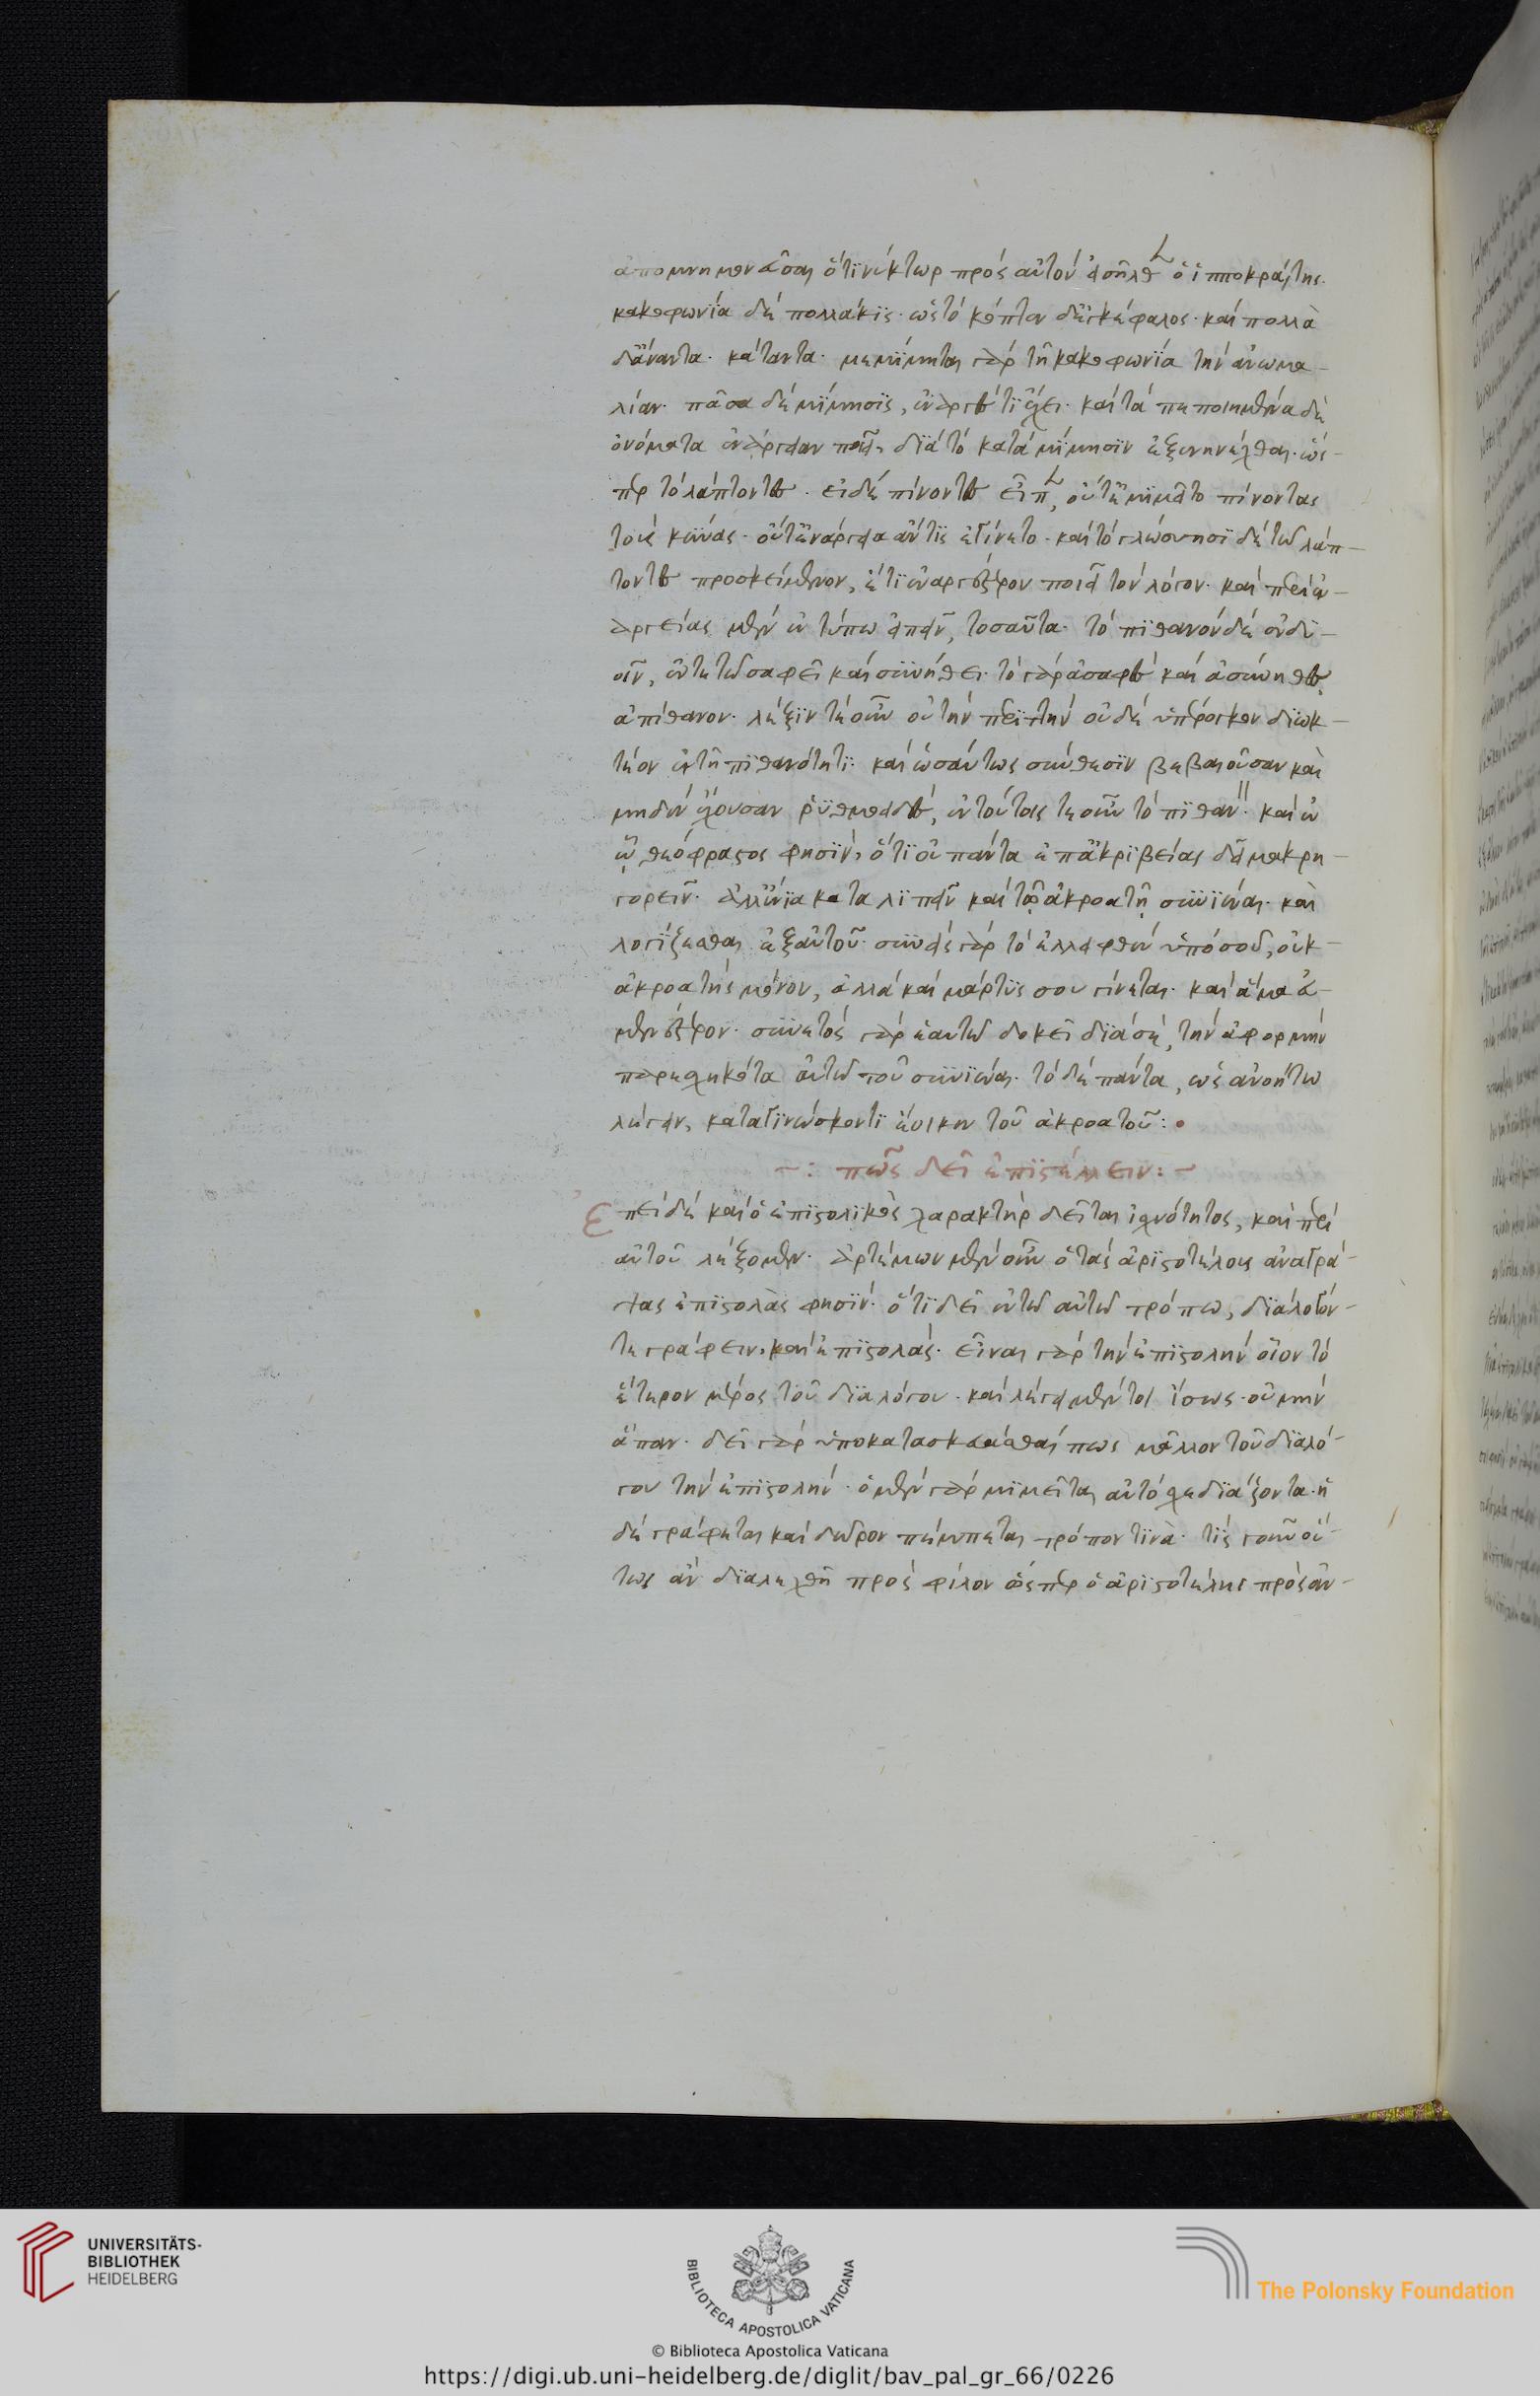 ἀπομνημονεῦσαι ὅτι νύκτωρ πρὸς αὐτὸν εἰσῆλθεν ὁ ἱπποκράτης.
κακοφωνία δὲ πολλάκις· ὡς τὸ κόπτον δὲ ἐγκέφαλος· καὶ πολλὰ
δ' ἄναντα· κάταντα· μεμίμηται γὰρ τῇ κακοφωνία τὴν ἀνωμα-
λίαν· πᾶσα δὲ μίμησις, ἐναργές τι ἔχει· καὶ τὰ πεποιημένα δὲ
ὀνόματα ἐνάργειαν ποιεῖ, διὰ τὸ κατὰ μίμησιν ἐξενηνέχθαι· ὥς-
περ τὸ λάπτοντες· εἰ δὲ πίνοντες εἶπεν, οὔτ' ἐμιμεῖτο πίνοντας
τοὺς κύνας· οὔτ' ἐνάργεια ἄν τις ἐγίνετο· καὶ τὸ γλώσσησι δὲ τῶ λάπ-
τοντες προσκείμενον, ἔτι ἐναργέστερον ποιεῖ τὸν λόγον· καὶ περὶ ἐν-
αργείας μὲν ἐν τύπω εἰπεῖν, τοσαῦτα· τὸ πιθανὸν δὲ ἐν δυ-
οῖν, ἔν τε τῶ σαφεῖ καὶ συνήθει· τὸ γὰρ ἀσαφὲς καὶ ἀσύνηθες,
ἀπίθανον· λέξιν τε οὖν οὐ τὴν περιττὴν οὐδὲ ὑπέρογκον διωκ-
τέον ἐν τῇ πιθανότητι· καὶ ὡσαύτως σύνθεσιν βεβαιοῦσαν καὶ
μηδὲν ἔχουσαν ῥυθμοειδές, ἐν τούτοις τε οὖν τὸ πιθανόν· καὶ ἐν
ᾧ θεόφραστος φησίν, ὅτι οὐ πάντα ἐπ' ἀκριβείας δεῖ μακρη-
γορεῖν· ἀλλ' ἔνια καταλιπεῖν καὶ τῷ ἀκροατῇ συνιέναι· καὶ
λογίζεσθαι ἐξ αὐτοῦ· συνεὶς γὰρ τὸ ἐλλειφθὲν ὑπὸ σοῦ, οὐκ-
ἀκροατὴς μόνον, ἀλλὰ καὶ μάρτυς σου γίνεται· καὶ ἅμα εὐ-
μενέστερον· συνετὸς γὰρ ἑαυτῶ δοκεῖ διὰ σὲ, τὴν ἀφορμὴν
παρεσχηκότα αὐτῶ τοῦ συνιέναι· τὸ δὲ πάντα, ὡς ἀνοήτω
λέγειν, καταγινώσκοντι ἔοικεν τοῦ ἀκροατοῦ:
~: πῶς δεῖ ἐπιστέλλειν: ~
Ἐπεὶ δὲ καὶ ὁ ἐπιστολικὸς χαρακτὴρ δεῖται ἰσχνότητος, καὶ περὶ
αὐτοῦ λέξομεν· ἀρτέμων μὲν οὖν ὁ τὰς ἀριστοτέλους ἀναγρά-
ψας ἐπιστολὰς φησίν· ὅτι δεῖ ἐν τῶ αὐτῶ τρόπω, διάλογόν-
τε γράφειν, καὶ ἐπιστολάς· εἶναι γὰρ τὴν ἐπιστολὴν οἷον τὸ
ἕτερον μέρος τοῦ διαλόγου· καὶ λέγει μέν τοι ἴσως· οὐ μὴν
ἅπαν· δεῖ γὰρ ὑποκατασκευάσθαί πως μᾶλλον τοῦ διαλό-
γου τὴν ἐπιστολήν· ὁ μὲν γὰρ μιμεῖται αὐτοσχεδιάζοντα· ἡ
δὲ γράφεται καὶ δῶρον πέμπεται τρόπον τινὰ· τίς γοῦν οὕ-
τως ἂν διαλεχθῇ πρὸς φίλον ὥςπερ ὁ ἀριστοτέλης πρὸς ἀν-
UNIVERSITÄTS-
BIBLIOTHEK
HEIDELBERG
BIBLIOTECA APOSTOLICA VATICANA
© Biblioteca Apostolica Vaticana
The Polonsky Foundation
https://digi.ub.uni-heidelberg.de/diglit/bav_pal_gr_66/0226